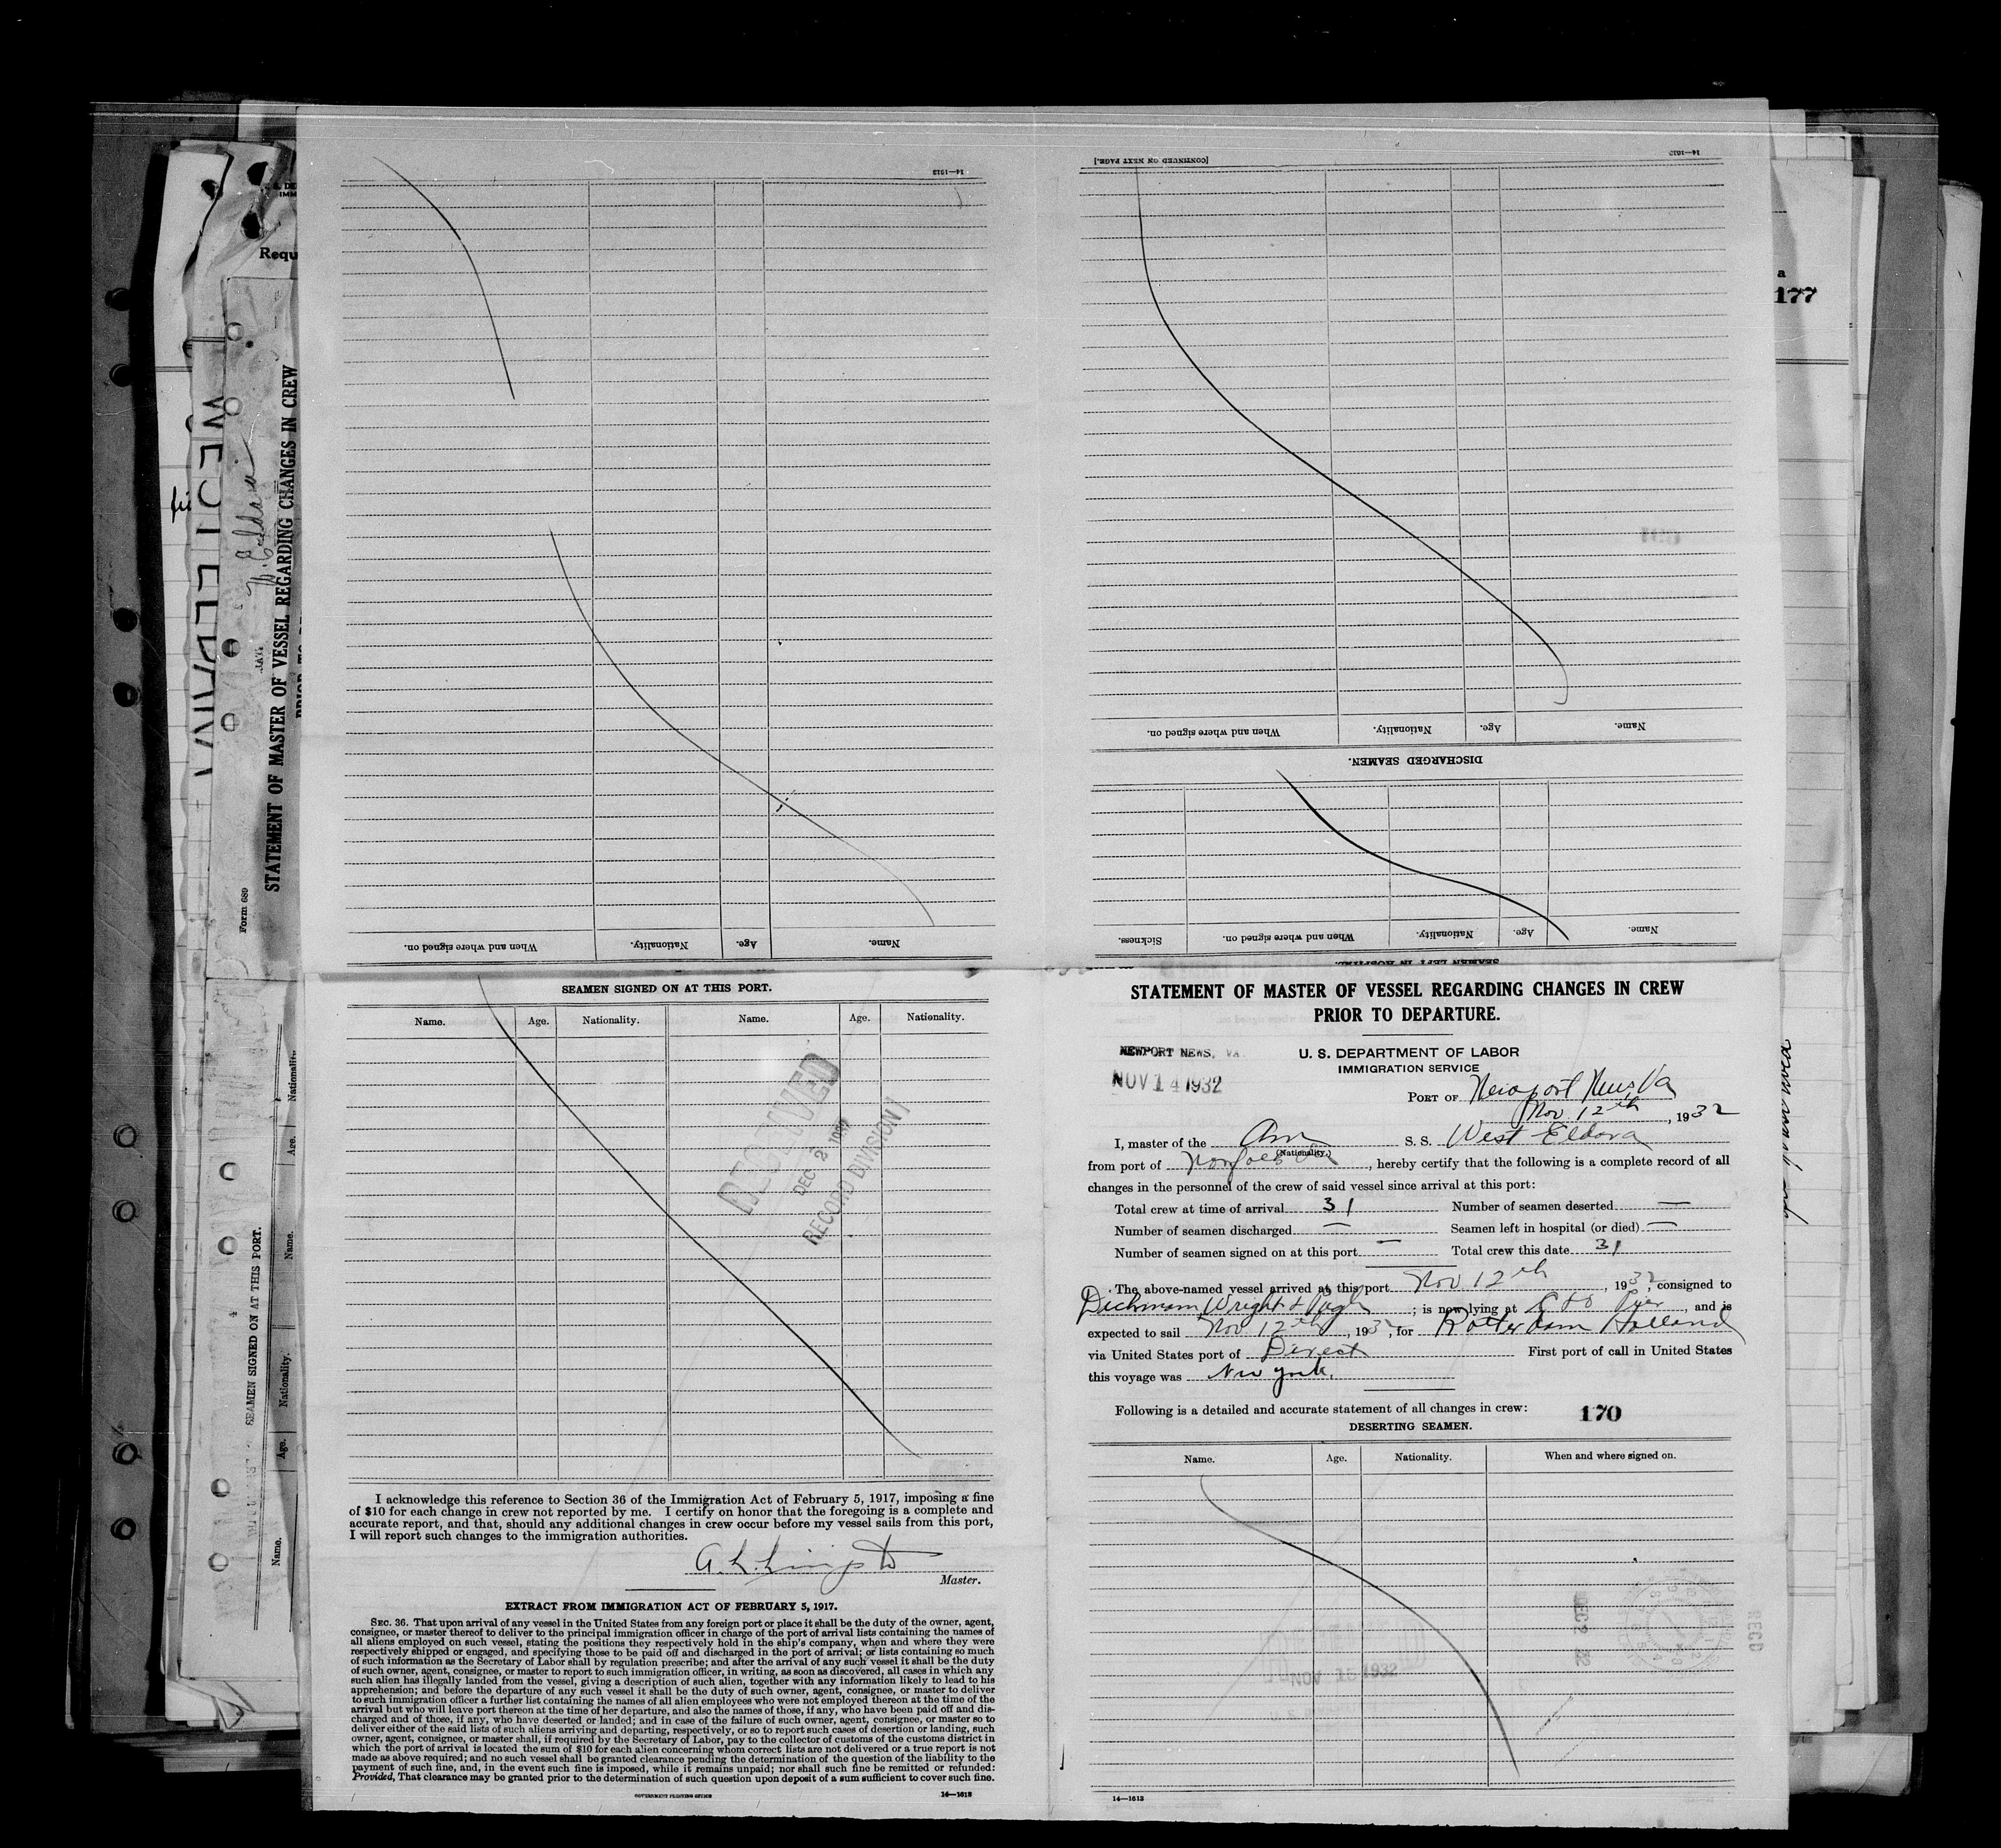 STATEMENT OF MASTER OF VESSEL REGARDING CHANGES IN CREW
PRIOR TO DEPARTURE.
NEWPORT NEWS, VA.
NOV 14 1932
U. S. DEPARTMENT OF LABOR
IMMIGRATION SERVICE
PORT OF Newport News Va
Nov 12th, 1932
I, master of the Am S. S. West Eldara
(Nationality.)
from port of Norfolk Va, hereby certify that the following is a complete record of all
changes in the personnel of the crew of said vessel since arrival at this port:
Total crew at time of arrival 31 Number of seamen deserted —
Number of seamen discharged — Seamen left in hospital (or died) —
Number of seamen signed on at this port — Total crew this date 31
The above-named vessel arrived at this port Nov 12th, 1932, consigned to
Dichmann Wright & Pugh; is now lying at C & O Pier, and is
expected to sail Nov 12th, 1932, for Rotterdam Holland
via United States port of Direct First port of call in United States
this voyage was New York.
Following is a detailed and accurate statement of all changes in crew:
170
DESERTING SEAMEN.
Name. Age. Nationality. When and where signed on.
DEC 2 32
RECD
NOV 15 1932
14—1613
SEAMEN LEFT IN HOSPITAL.
Name. Age. Nationality. When and where signed on. Sickness.
DISCHARGED SEAMEN.
Name. Age. Nationality. When and where signed on.
14—1613
[CONTINUED ON NEXT PAGE.]
Name. Age. Nationality. When and where signed on.
14—1613
SEAMEN SIGNED ON AT THIS PORT.
Name. Age. Nationality. Name. Age. Nationality.
RECEIVED
DEC 2 1932
RECORD DIVISION
I acknowledge this reference to Section 36 of the Immigration Act of February 5, 1917, imposing a fine
of $10 for each change in crew not reported by me. I certify on honor that the foregoing is a complete and
accurate report, and that, should any additional changes in crew occur before my vessel sails from this port,
I will report such changes to the immigration authorities.
Master.
EXTRACT FROM IMMIGRATION ACT OF FEBRUARY 5, 1917.
SEC. 36. That upon arrival of any vessel in the United States from any foreign port or place it shall be the duty of the owner, agent,
consignee, or master thereof to deliver to the principal immigration officer in charge of the port of arrival lists containing the names of
all aliens employed on such vessel, stating the positions they respectively hold in the ship's company, when and where they were
respectively shipped or engaged, and specifying those to be paid off and discharged in the port of arrival; or lists containing so much
of such information as the Secretary of Labor shall by regulation prescribe; and after the arrival of any such vessel it shall be the duty
of such owner, agent, consignee, or master to report to such immigration officer, in writing, as soon as discovered, all cases in which any
such alien has illegally landed from the vessel, giving a description of such alien, together with any information likely to lead to his
apprehension; and before the departure of any such vessel it shall be the duty of such owner, agent, consignee, or master to deliver
to such immigration officer a further list containing the names of all alien employees who were not employed thereon at the time of the
arrival but who will leave port thereon at the time of her departure, and also the names of those, if any, who have been paid off and dis-
charged and of those, if any, who have deserted or landed; and in case of the failure of such owner, agent, consignee, or master so to
deliver either of the said lists of such aliens arriving and departing, respectively, or so to report such cases of desertion or landing, such
owner, agent, consignee, or master shall, if required by the Secretary of Labor, pay to the collector of customs of the customs district in
which the port of arrival is located the sum of $10 for each alien concerning whom correct lists are not delivered or a true report is not
made as above required; and no such vessel shall be granted clearance pending the determination of the question of the liability to the
payment of such fine, and, in the event such fine is imposed, while it remains unpaid; nor shall such fine be remitted or refunded:
Provided, That clearance may be granted prior to the determination of such question upon deposit of a sum sufficient to cover such fine.
GOVERNMENT PRINTING OFFICE
14—1613
Requ
Form 689
STATEMENT OF MASTER OF VESSEL REGARDING CHANGES IN CREW
W. Eldara
SEAMEN SIGNED ON AT THIS PORT.
Name. Age. Nationality. Name. Age. Nationality.
177